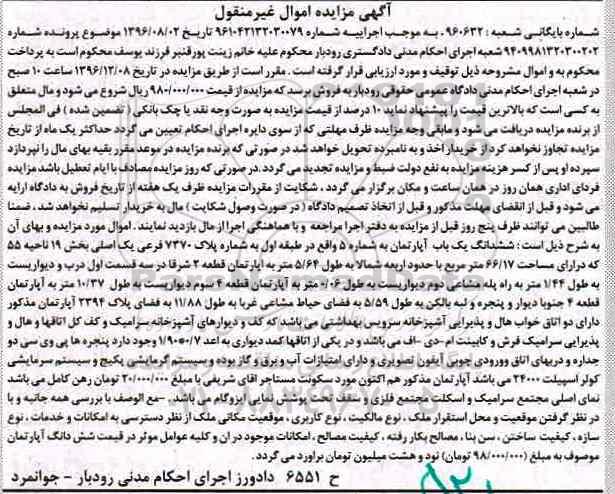 آگهی مزایده اموال غیرمنقول
شماره بایگانی شعبه : ۹۶۰۶۳۲ـ به موجب اجراییه شماره ۹۶۱۰۴۲۱۳۲۰۳۰۰۷۹ تاریخ ۱۳۹۶/۰۸/۰۲ موضوع پرونده شماره
۹۴۰۹۹۸۱۳۲۰۳۰۰۲۰۲ شعبه اجرای احکام مدنی دادگستری رودبار محکوم علیه خانم زینت پورقنبر فرزند یوسف محکوم است به پرداخت
محکوم به و اموال مشروحه ذیل توقیف و مورد ارزیابی قرار گرفته است . مقرر است از طریق مزایده در تاریخ ۱۳۹۶/۱۲/۰۸ ساعت ۱۰ صبح
در شعبه اجرای احکام مدنی دادگاه عمومی حقوقی رودبار به فروش برسد که مزایده از قیمت ۹۸۰/۰۰۰/۰۰۰ ریال شروع می شود و مال متعلق
به کسی است که بالاترین قیمت را پیشنهاد نماید ۱۰ درصد از قیمت مزایده به صورت وجه نقد یا چک بانکی ( تضمین شده ) فی المجلس
از برنده مزایده دریافت می شود و مابقی وجه مزایده ظرف مهلتی که از سوی دایره اجرای احکام تعیین می گردد حداکثر یک ماه از تاریخ
مزایده تجاوز نخواهد کرد از خریدار اخذ و به نامبرده تحویل خواهد شد در صورتی که برنده مزایده در موعد مقرر بقیه بهای مال را نپردازد
سپرده او پس از کسر هزینه مزایده به نفع دولت ضبط و مزایده تجدید می گردد .در صورتی که روز مزایده مصادف با ایام تعطیل باشد مزایده
فردای اداری همان روز در همان ساعت و مکان برگزار می گردد ، شکایت از مقررات مزایده ظرف یک هفته از تاریخ فروش به دادگاه ارایه
می شود و قبل از انقضای مهلت مذکور و قبل از اتخاذ تصمیم دادگاه ( در صورت وصول شکایت ) مال به خریدار تسلیم نخواهد شد ، ضمنا
طالبین می توانند ظرف پنج روز قبل از مزایده به دفتر اجرا مراجعه و با هماهنگی اجرا از مال بازدید نمایند. اموال مورد مزایده و بهای آن
به شرح ذیل است : ششدانگ یک باب آپارتمان به شماره ۵ واقع در طبقه اول به شماره پلاک ۷۳۷۰ فرعی یک اصلی بخش ۱۹ ناحیه ۵۵
که درارای مساحت ۶۶/۱۷ متر مربع با حدود اربعه شمالا به طول ۵/۶۴ متر به آپارتمان قطعه ۳ شرقا در سه قسمت اول درب و دیواریست
به طول ۱/۴۴ متر به راه پله مشاعی دوم دیواریست به طول ۰/۰۶ متر به آپارتمان قطعه ۴ سوم دیواریست به طول ۱۰/۳۷ متر به آپارتمان
قطعه ۴ جنوبا دیوار و پنجره و لبه بالکن به طول ۵/۵۹ به فضای حیاط مشاعی غربا به طول ۱۱/۸۸ به فضای پلاک ۲۳۹۴ آپارتمان مذکور
دارای دو اتاق خواب هال و پذیرایی آشپزخانه سرویس بهداشتی می باشد که کف و دیوارهای آشپزخانه سرامیک و کف کل اتاقها و هال و
پذیرایی سرامیک فرش و کابینت ام-دی -اف می باشد و در یکی از اتاقها کمد دیواری به ابعاد ۱/۹۰*۰/۷ وجود دارد پنجره ها پی وی سی دو
جداره و دربهای اتاق وورودی چوبی آیفون تصویری و دارای امتیازات آب و برق و گاز بوده و سیستم گرمایشی پکیج و سیستم سرمایشی
کولر اسپیلت ۲۴۰۰۰ می باشد آپارتمان مذکور هم اکنون مورد سکونت مستاجر اقای شریفی با مبلغ ۲۰/۰۰۰/۰۰۰ تومان رهن کامل می باشد
نمای اصلی مجتمع سرامیک و اسکلت مجتمع فلزی و سقف تحت پوشش نمایی ایزوگام می باشد. -مع الوصف با بررسی همه جانبه و با
در نظر گرفتن موقعیت و محل استقرار ملک ، نوع مالکیت ، نوع کاربری ، موقعیت مکانی ملک از نظر دسترسی به امکانات و خدمات ، نوع
سازه ، کیفیت ساختن ، سن بنا ، مصالح بکار رفته ، کیفیت مصالح ، امکانات موجود در ان و کلیه عوامل موثر در قیمت شش دانگ آپارتمان
موصوف به مبلغ (۹۸/۰۰۰/۰۰۰ تومان) نود و هشت میلیون تومان براورد می گردد.
ح ۶۵۵۱ دادورز اجرای احکام مدنی رودبار - جوانمرد